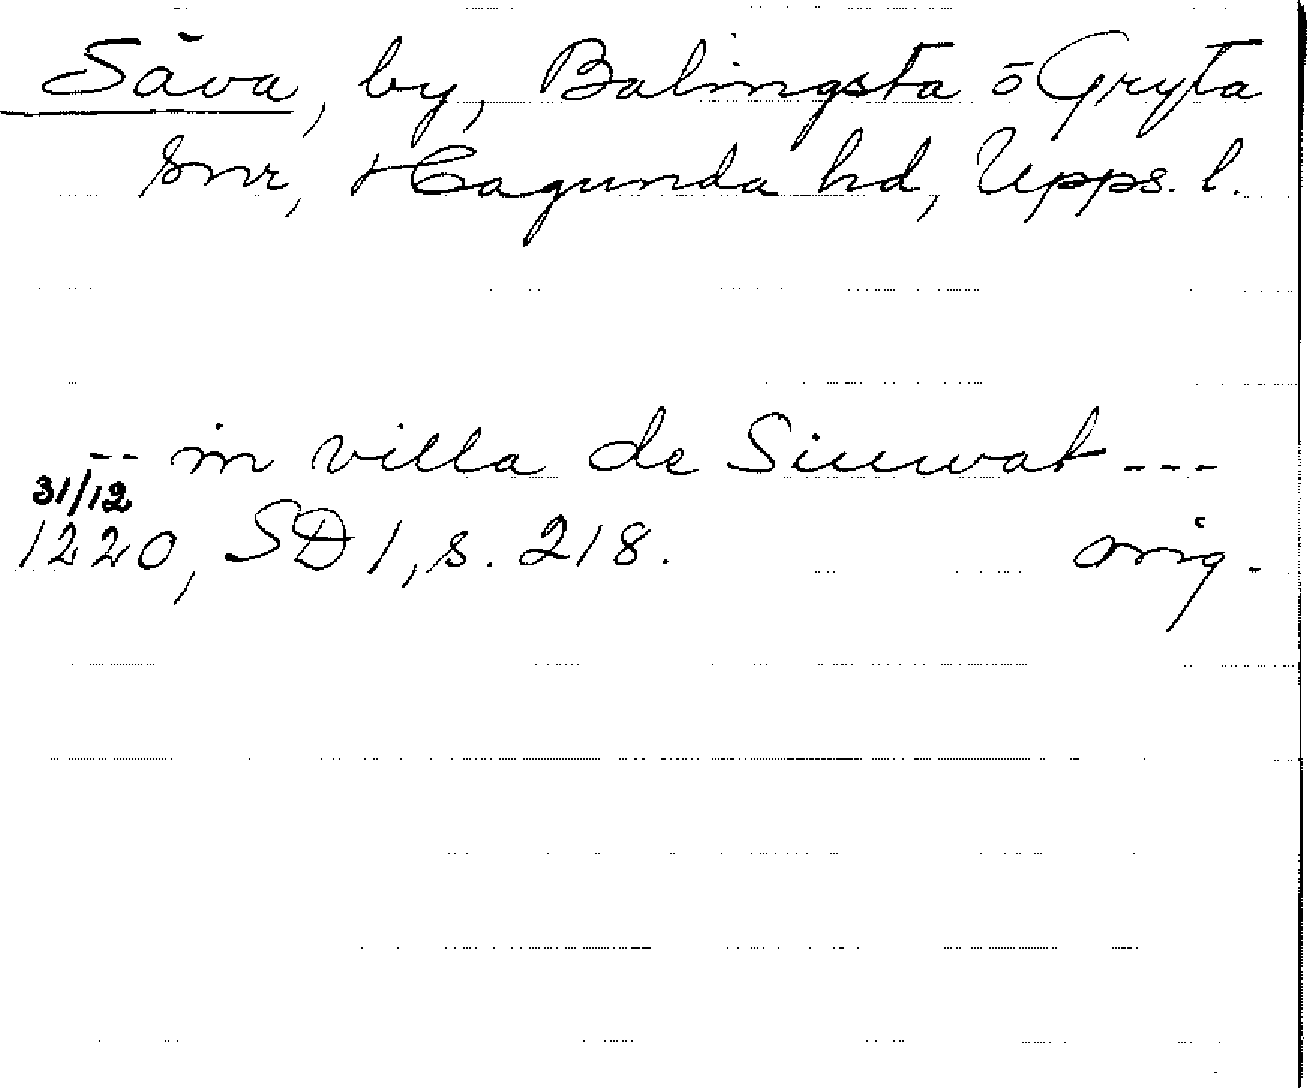 Säva, by, Balingsta o Gryta
snr, Hagunda hd, Upps. l.
-- in villa de Siuuat ---
31/12
1220, SD 1, s. 218. orig.